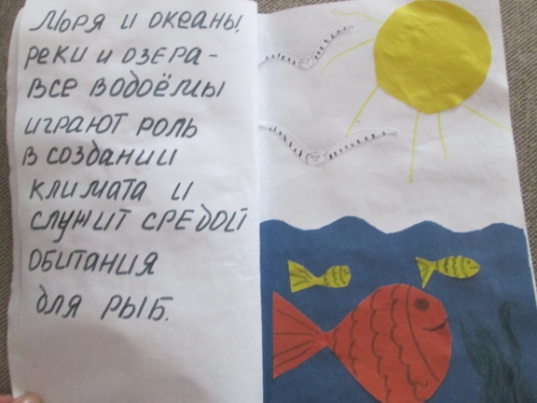 Моря и океаны,
реки и озера -
все водоёмы
играют роль
в создании
климата и
служит средой
обитания
для рыб.